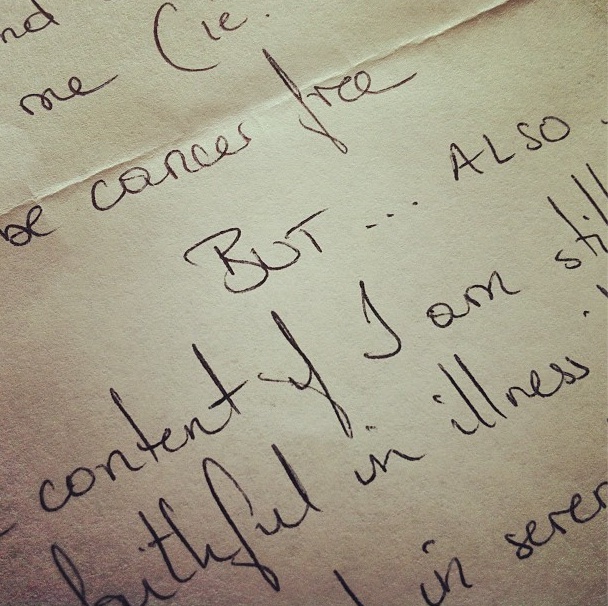 me (ie.
be cancer free
BUT... ALSO
content if I am still
faithful in illness
in